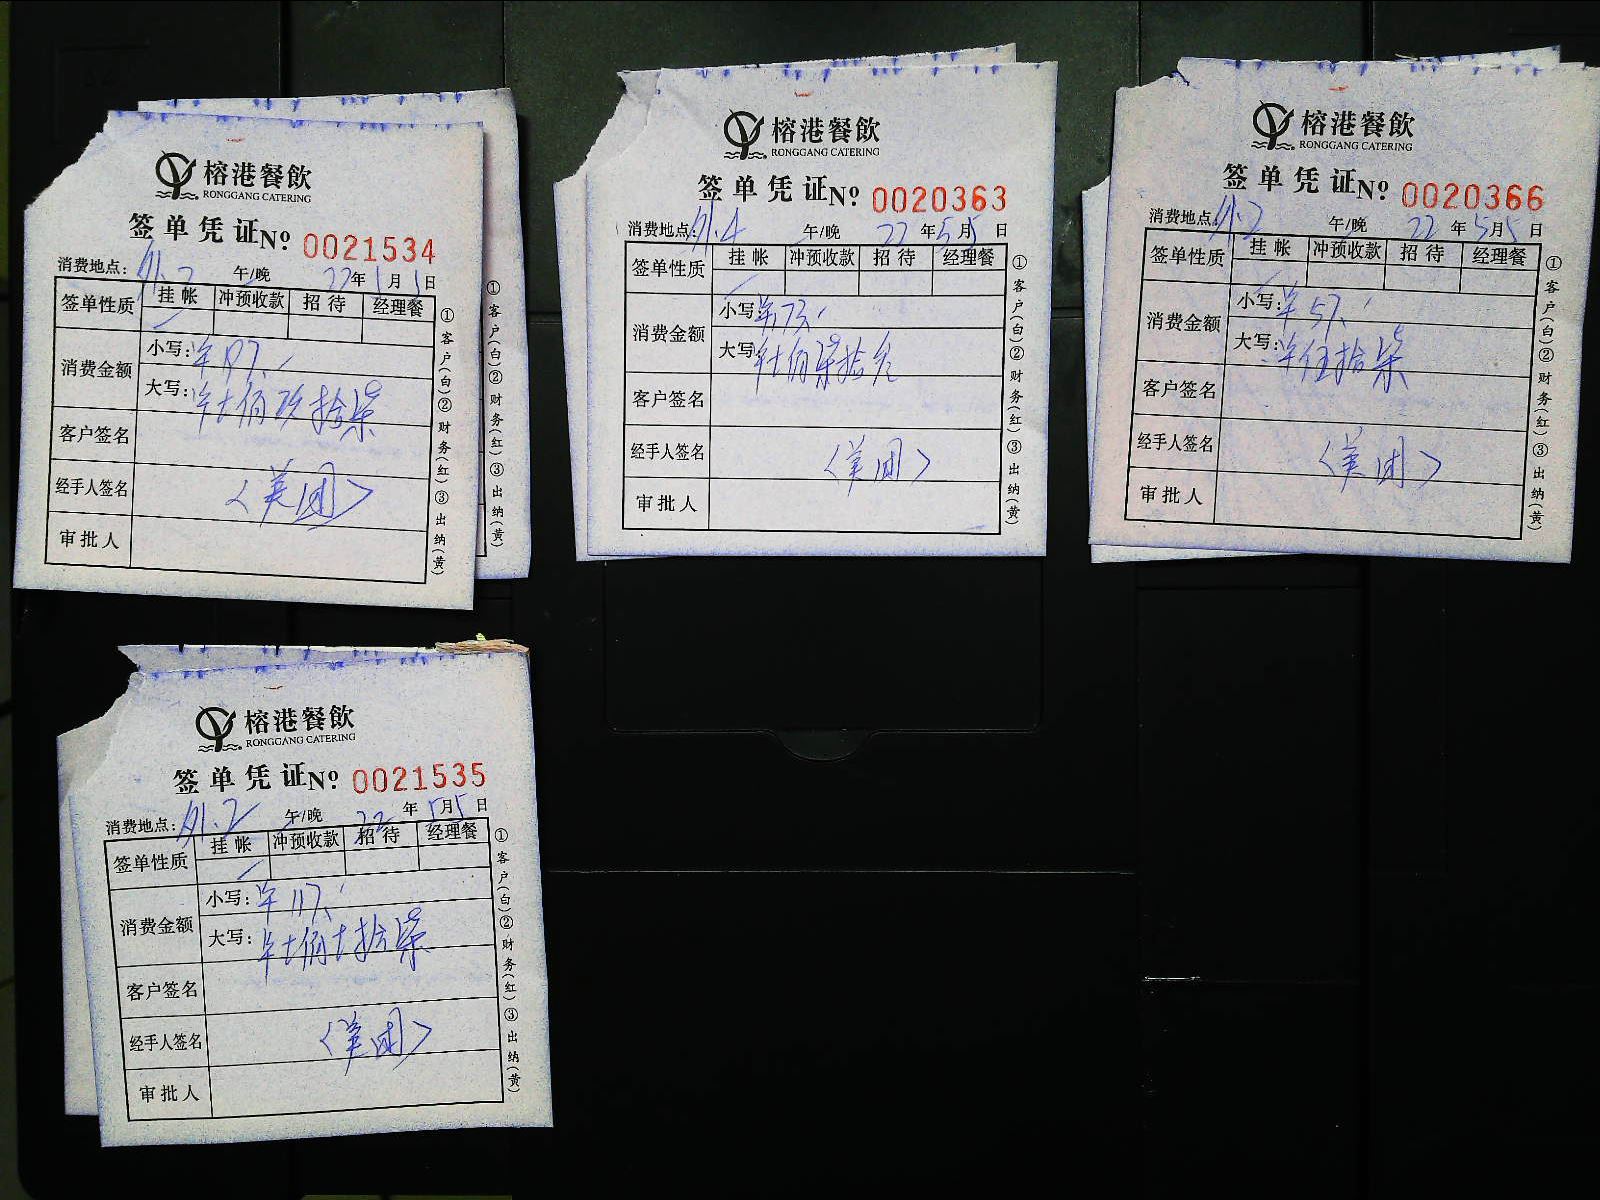 榕港餐飲
RONGGANG CATERING
签单凭证No 0021534
消费地点: 外.2 午/晚 22年 月 日
签单性质 挂帐 冲预收款 招待 经理餐
消费金额 小写:
大写:
客户签名
经手人签名 〈美团〉
审批人
①客户(白)②财务(红)③出纳(黄)
①客户(白)②财务(红)③出纳(黄)
榕港餐飲
RONGGANG CATERING
签单凭证No 0020363
消费地点: 外.4 午/晚 22年5月5日
签单性质 挂帐 冲预收款 招待 经理餐
消费金额 小写:
大写:
客户签名
经手人签名 〈美团〉
审批人
①客户(白)②财务(红)③出纳(黄)
榕港餐飲
RONGGANG CATERING
签单凭证No 0020366
消费地点: 外.2 午/晚 22年5月5日
签单性质 挂帐 冲预收款 招待 经理餐
消费金额 小写: 57.
大写: 伍拾柒
客户签名
经手人签名 〈美团〉
审批人
①客户(白)②财务(红)③出纳(黄)
榕港餐飲
RONGGANG CATERING
签单凭证No 0021535
消费地点: 外.2 午/晚 22年5月5日
签单性质 挂帐 冲预收款 招待 经理餐
消费金额 小写: 117.
大写:
客户签名
经手人签名 〈美团〉
审批人
①客户(白)②财务(红)③出纳(黄)